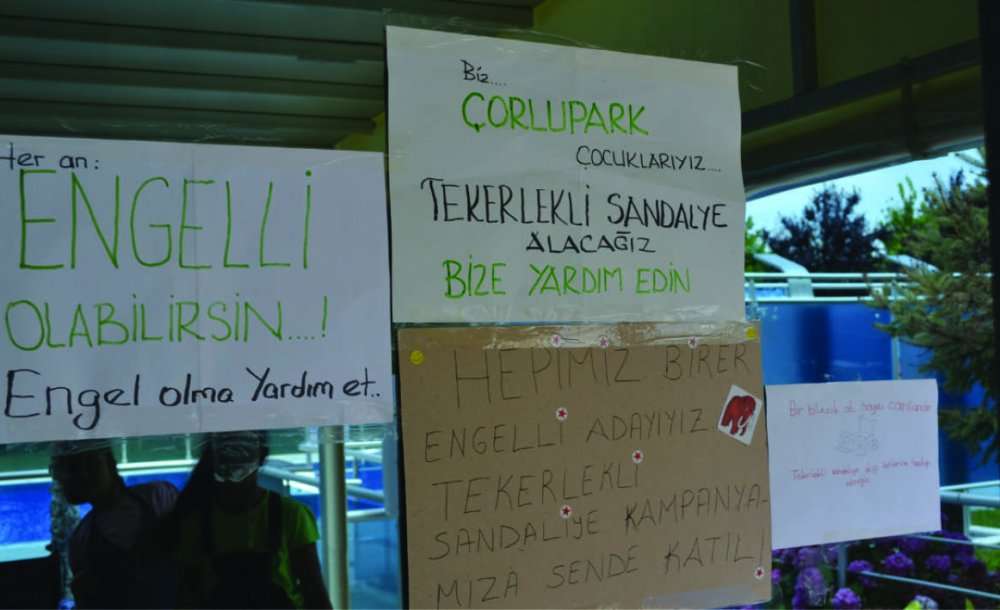 Her an:
ENGELLİ
OLABİLİRSİN....!
Engel olma Yardım et..
Biz....
ÇORLUPARK
ÇOCUKLARIYIZ....
TEKERLEKLİ SANDALYE
ALACAĞIZ
BİZE YARDIM EDİN
HEPİMİZ BİRER
ENGELLİ ADAYIYIZ
TEKERLEKLİ
SANDALİYE KAMPANYA-
MIZA SENDE KATIL!
Bir
Tekerlekli